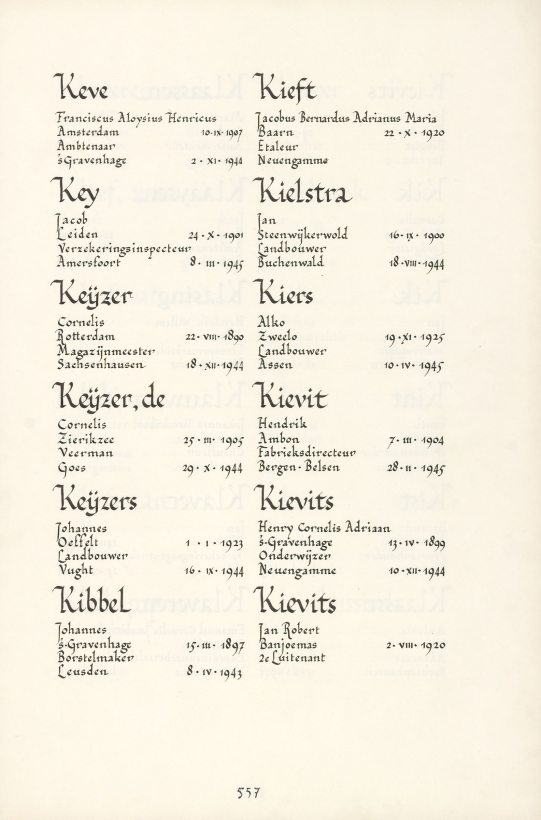 Keve
Franciscus Aloysius Henricus
Amsterdam 10·IX·1907
Ambtenaar
'sGravenhage 2·XI·1944
Key
Jacob
Leiden 24·X·1901
Verzekeringsinspecteur
Amersfoort 8·III·1945
Keijzer
Cornelis
Rotterdam 22·VIII·1890
Magazijnmeester
Sachsenhausen 18·XII·1944
Keijzer, de
Cornelis
Zierikzee 25·III·1905
Veerman
Goes 29·X·1944
Keijzers
Johannes
Oeffelt 1·I·1923
Landbouwer
Vught 16·IX·1944
Kibbel
Johannes
's-Gravenhage 15·III·1897
Borstelmaker
Leusden 8·IV·1943
Kieft
Jacobus Bernardus Adrianus Maria
Baarn 22·X·1920
Etaleur
Neuengamme
Kielstra
Jan
Steenwijkerwold 16·IX·1900
Landbouwer
Buchenwald 18·VIII·1944
Kiers
Alko
Zweelo 19·XI·1925
Landbouwer
Assen 10·IV·1945
Kievit
Hendrik
Ambon 7·III·1904
Fabrieksdirecteur
Bergen-Belsen 28·II·1945
Kievits
Henry Cornelis Adriaan
's-Gravenhage 13·IV·1899
Onderwijzer
Neuengamme 10·XII·1944
Kievits
Jan Robert
Banjoemas 2·VIII·1920
2e Luitenant
557